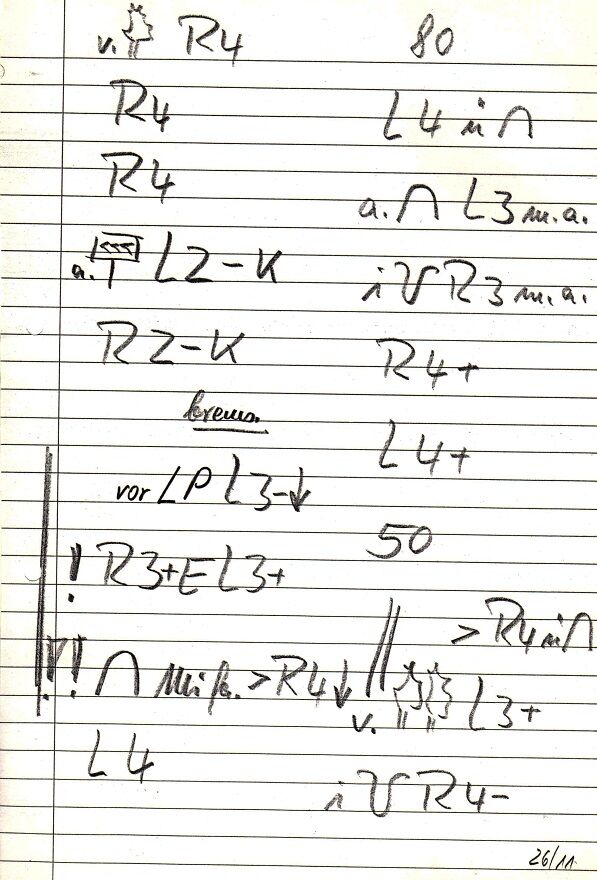 v. R4
R4
R4
a. L2-K
R2-K
brems.
vor LP L3-↓
! R3+E L3+
!! ∩ > R4↓
L4
80
L4 ü∩
a. ∩ L3 m.a.
i V R3 m.a.
R4+
L4+
50
> R4 ü∩
v. L3+
i V R4-
26/11